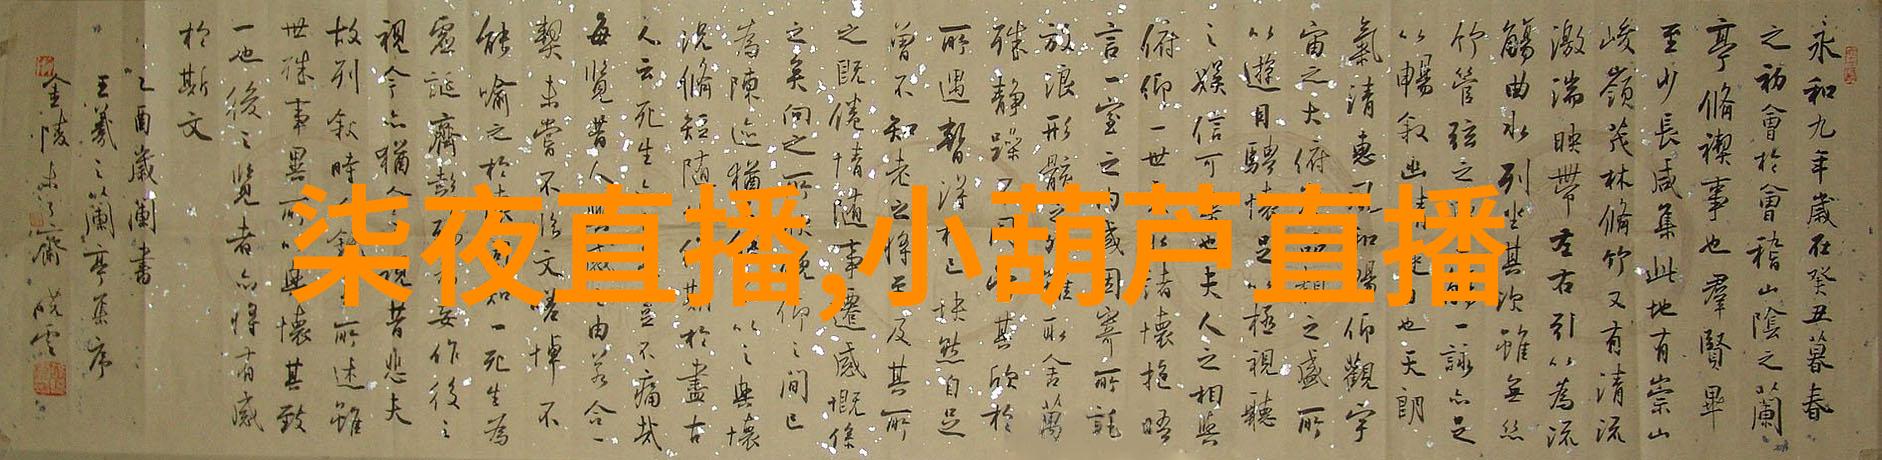 永和九年歲在癸丑暮春
之初會於會稽山陰之蘭
亭脩禊事也羣賢畢
至少長咸集此地有崇山
峻嶺茂林脩竹又有清流
激湍映帶左右引以為流
觴曲水列坐其次雖無絲
竹管弦之一詠亦足
以暢叙幽情是日也天朗
氣清惠風和暢仰觀宇
宙之大俯察品類之盛所
以遊目騁懷足以極視聽
之娛信可樂也夫人之相與
俯仰一世或取諸懷抱晤
言一室之內或因寄所託
放浪形骸之外雖取舍萬
殊静躁不同當其欣於
所遇暫得於己快然自足
曾不知老之將至及其所
之既倦情隨事遷感慨係
之矣向之所欣俛仰之間已
為陳迹猶不以之興懷
況脩短隨化終期於盡古
人云死生亦大矣豈不痛哉
每覽昔人興感之由若合一
契未嘗不臨文嗟悼不
能喻之於懷固知一死生為
虛誕齊彭殤為妄作後之
視今亦猶今之視昔悲夫
故列叙時人錄其所述雖
世殊事異所以興懷其致
一也後之覽者亦將有感
於斯文
乙酉歲蘭書
王羲之蘭亭集序
金陵齋曉雲
柒夜直播,小葫芦直播